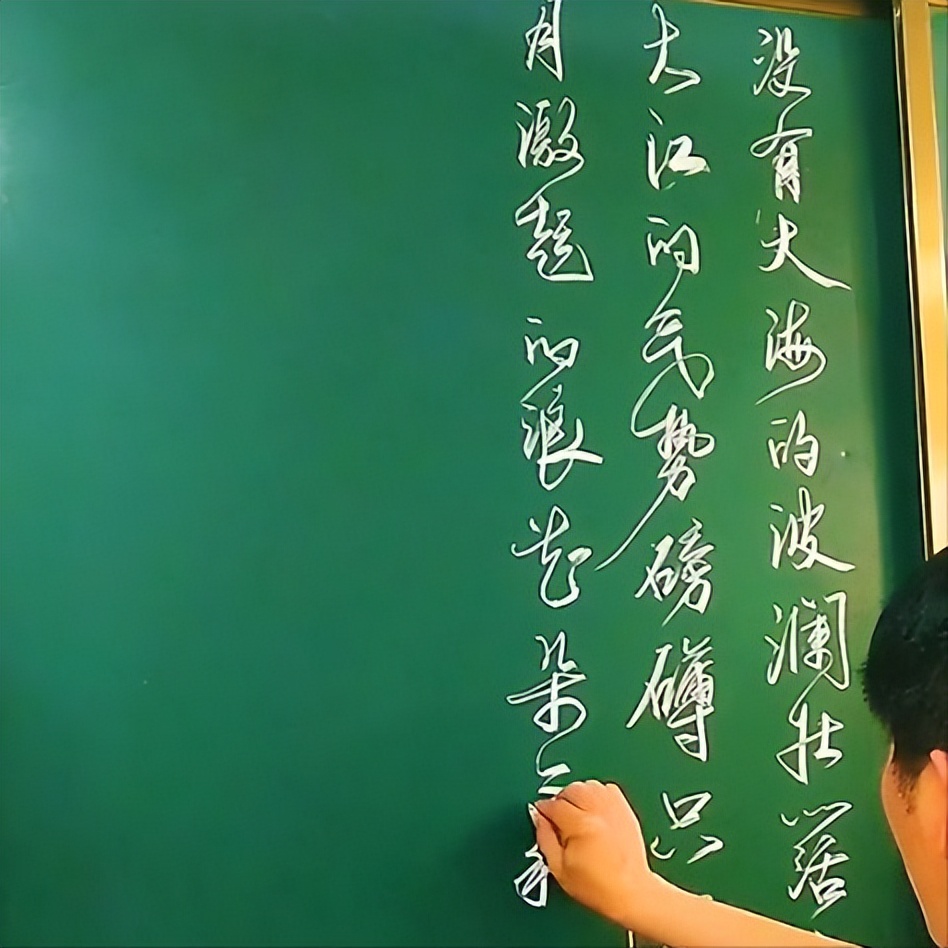 没有大海的波澜壮阔
大江的气势磅礴只
有激起的浪花朵